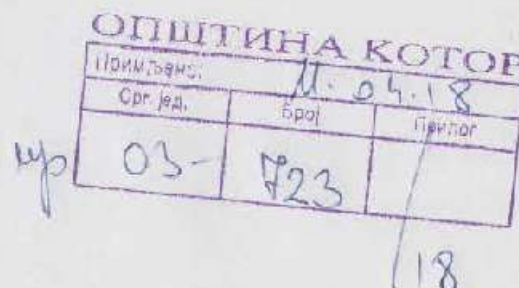 ОПШТИНА КОТОР
Примљено: 11.04.18
Орг. јед. Број Прилог
03- 723
18